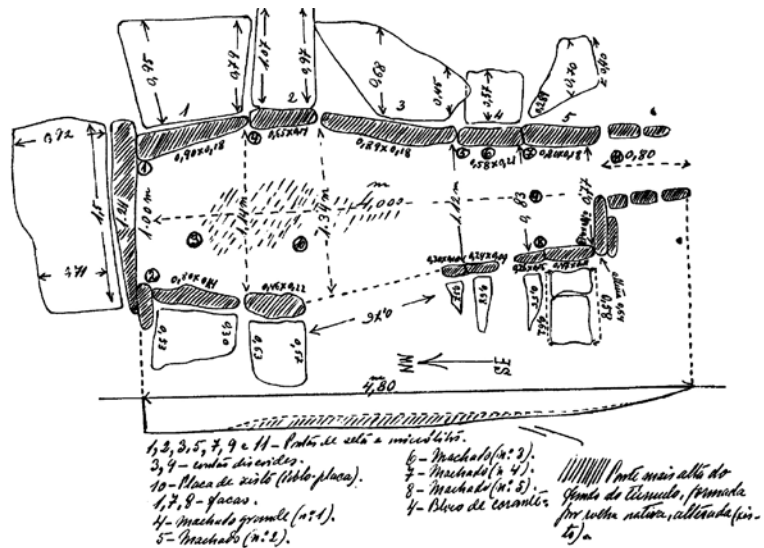 0,95
0,79
1,07
0,97
0,68
0,45
0,57
0,70
1
2
3
4
0,90x0,18
0,29x0,18
0,58x0,21
0,80
1,5
1,24
0,71
1.00 m
1.14 m
1.34 m
4,00
1.12 m
0,83
0,77
0,80x0,14
0,45x0,22
0,76
0,53
0,30
0,63
0,57
0,58
NW
SE
4,80
1, 2, 3, 5, 7, 9 e 11 – Pontas de seta e micrólitos.
3, 9 – contas discoides.
10 – Placa de xisto (ídolo-placa).
1, 7, 8 – facas.
4 – Machado grande (nº 1).
5 – Machado (nº 2).
6 – Machado (nº 3).
7 – Machado (nº 4).
8 – Machado (nº 5).
4 – Bloco de corante.
Parte mais alta do
fundo do túmulo, formada
por rocha nativa, alterada (xis-
to).